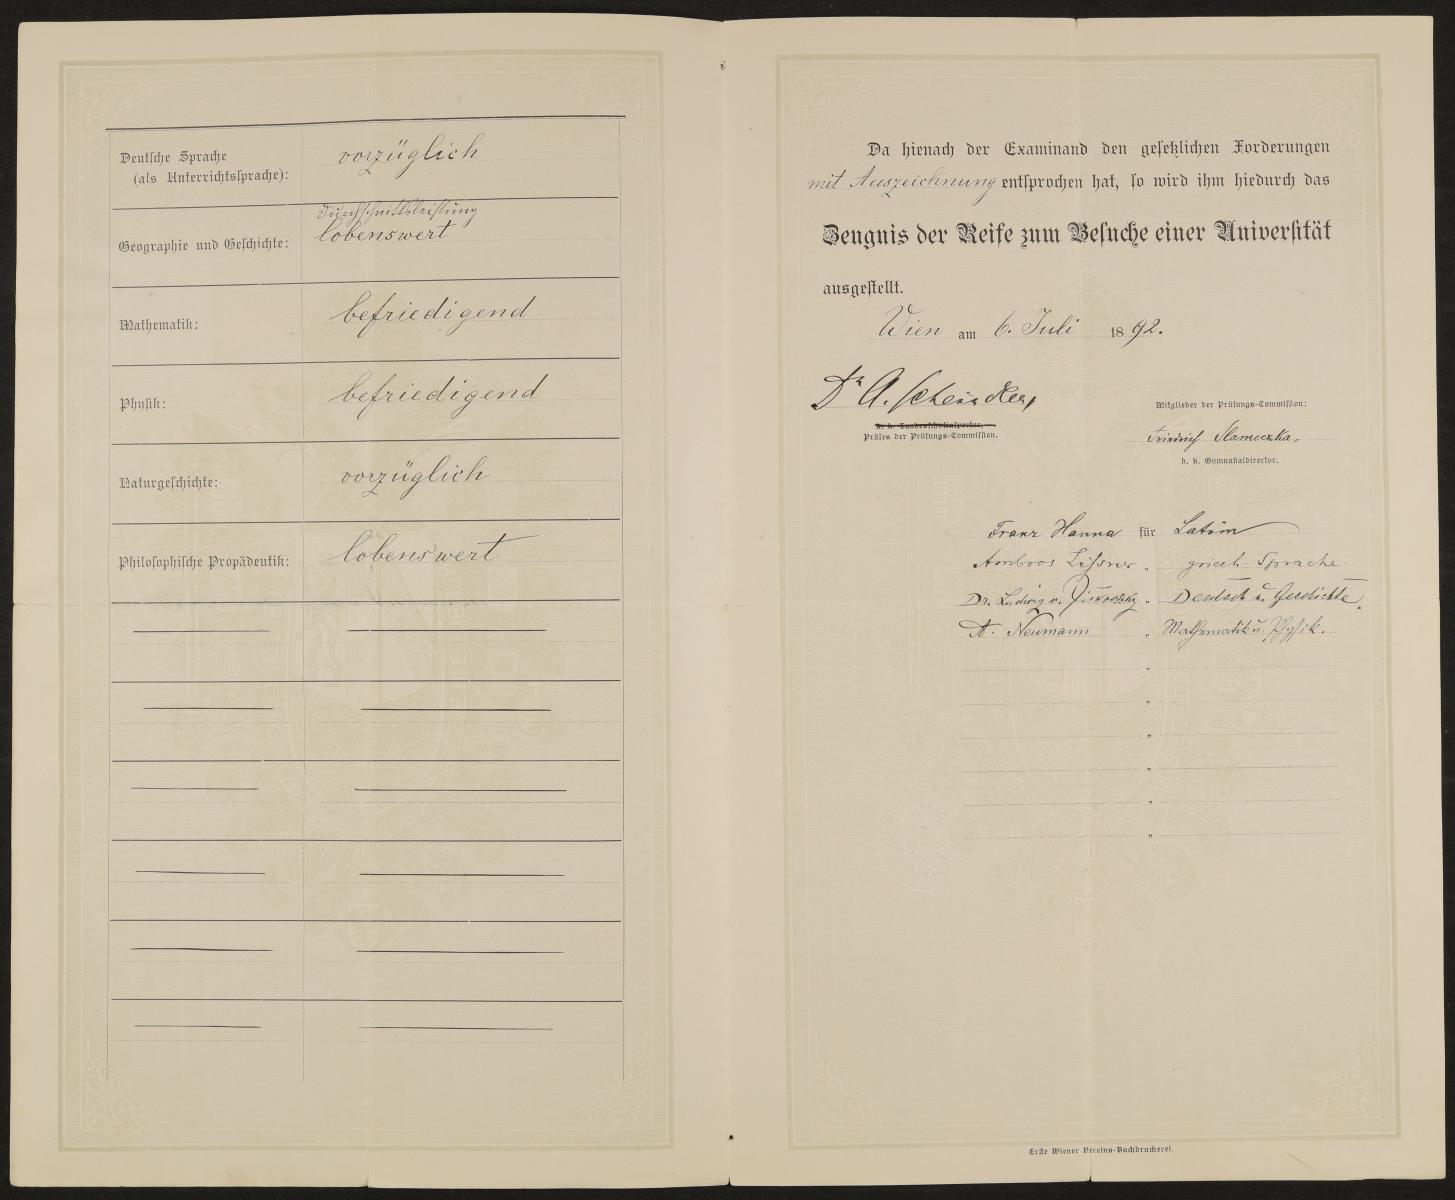 Deutsche Sprache
(als Unterrichtssprache): vorzüglich
Durchschnittsleistung
Geographie und Geschichte: lobenswert
Mathematik: befriedigend
Physik: befriedigend
Naturgeschichte: vorzüglich
Philosophische Propädeutik: lobenswert
Da hienach der Examinand den gesetzlichen Forderungen
mit Auszeichnung entsprochen hat, so wird ihm hiedurch das
Zeugnis der Reife zum Besuche einer Universität
ausgestellt.
Wien am 6. Juli 1892.
Dr A. Scheindler,
k. k. Landesschulinspector.
Präses der Prüfungs-Commission.
Mitglieder der Prüfungs-Commission:
Friedrich Slameczka,
k. k. Gymnasialdirector.
Franz Hanna für Latein
Ambros Lissner „ griech. Sprache
Dr. Ludwig v. „ Deutsch u. Geschichte
A. Neumann „ Mathematik u. Physik.
„
„
„
„
„
„
Erste Wiener Vereins-Buchdruckerei.